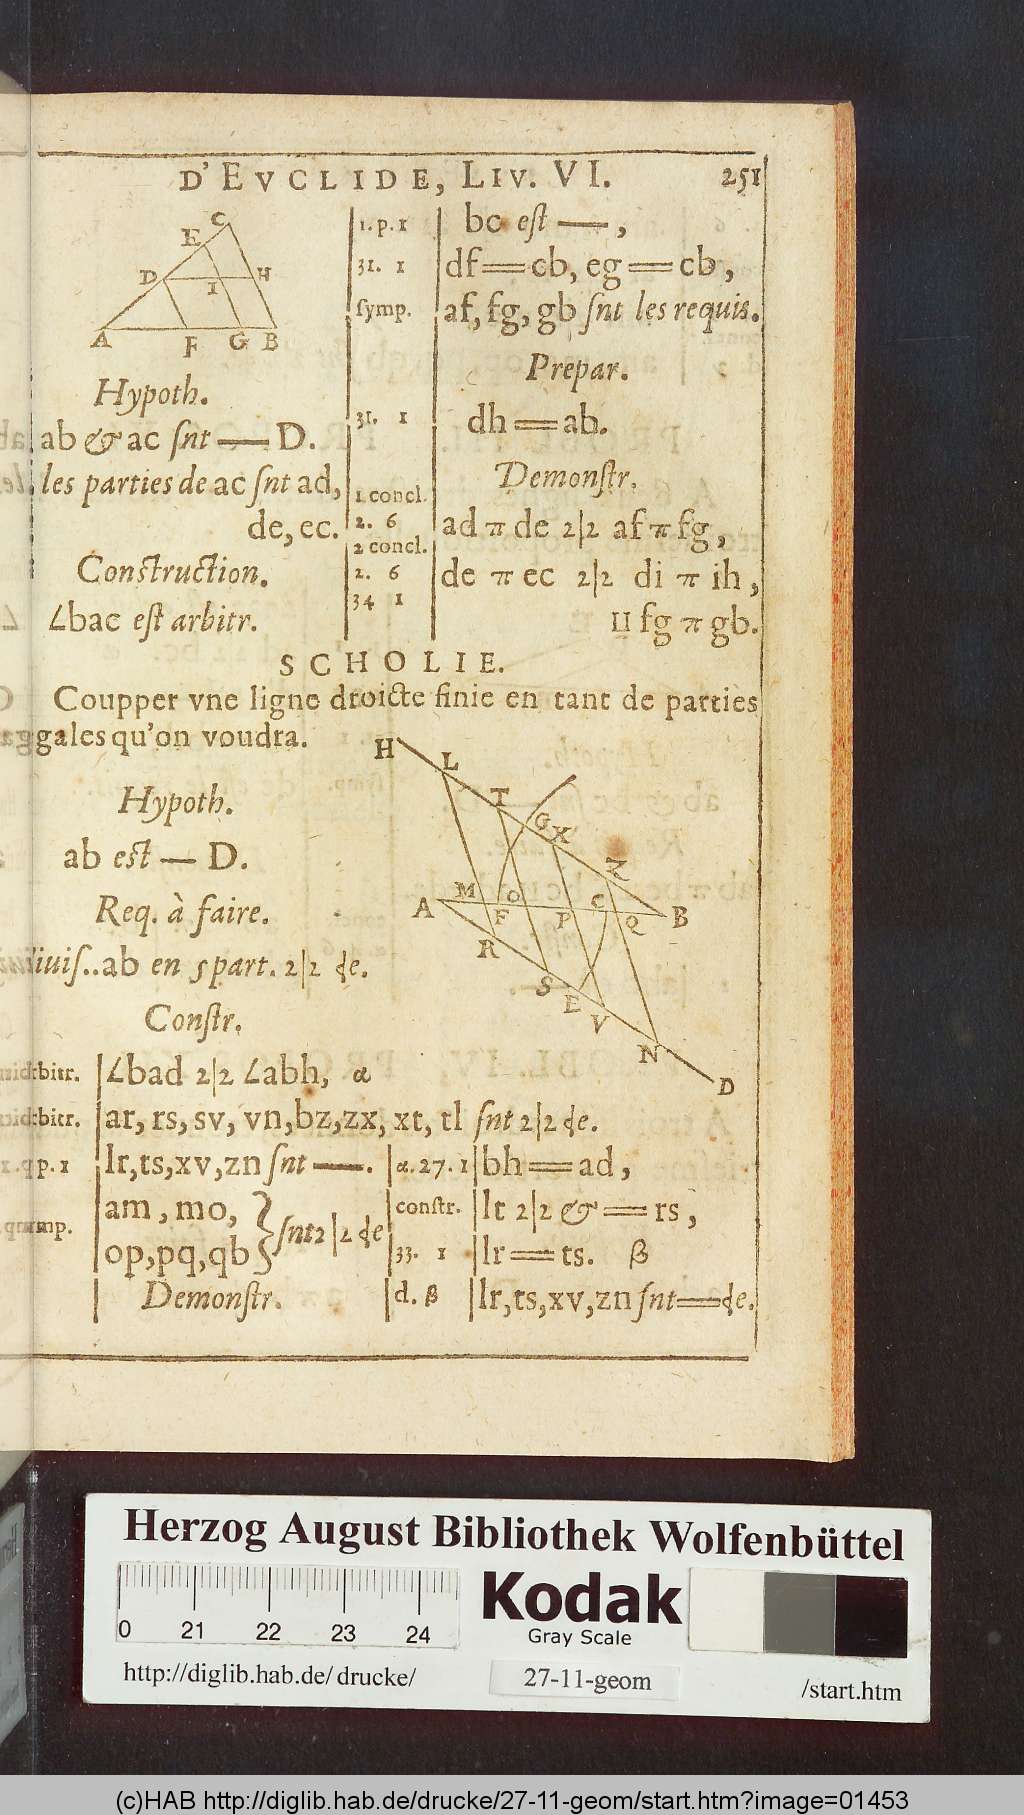 D'EVCLIDE, LIV. VI. 251
C
E
D H
I
A F G B
Hypoth.
ab & ac ſnt — D.
les parties de ac ſnt ad,
de, ec.
Construction.
∠bac eſt arbitr.
1. p. 1 | bc eſt —,
31. 1 | df = cb, eg = cb,
ſymp. | af, fg, gb ſnt les requis.
Prepar.
31. 1 | dh = ab.
Demonſtr.
1 concl.
2. 6 | ad π de 2|2 af π fg,
2 concl.
2. 6 | de π ec 2|2 di π ih,
34 1 | II fg π gb.
SCHOLIE.
Coupper vne ligne droicte finie en tant de parties
gales qu'on voudra.
Hypoth.
ab est — D.
Req. à faire.
iuiſ..ab en 5 part. 2|2 ɖe.
Conſtr.
H L T G X Z
A M F O P C Q B
R S E V N D
bitr. | ∠bad 2|2 ∠abh, α
bitr. | ar, rs, sv, vn, bz, zx, xt, tl ſnt 2|2 ɖe.
p. 1 | lr, ts, xv, zn ſnt —. | α. 27. 1 | bh = ad,
mp. | am, mo, op, pq, qb } ſnt 2|2 ɖe | conſtr. | lt 2|2 & = rs,
33. 1 | lr = ts. β
Demonſtr. | d. β | lr, ts, xv, zn ſnt = ɖe.
Herzog August Bibliothek Wolfenbüttel
0 21 22 23 24
Kodak
Gray Scale
http://diglib.hab.de/drucke/ 27-11-geom /start.htm
(c)HAB http://diglib.hab.de/drucke/27-11-geom/start.htm?image=01453